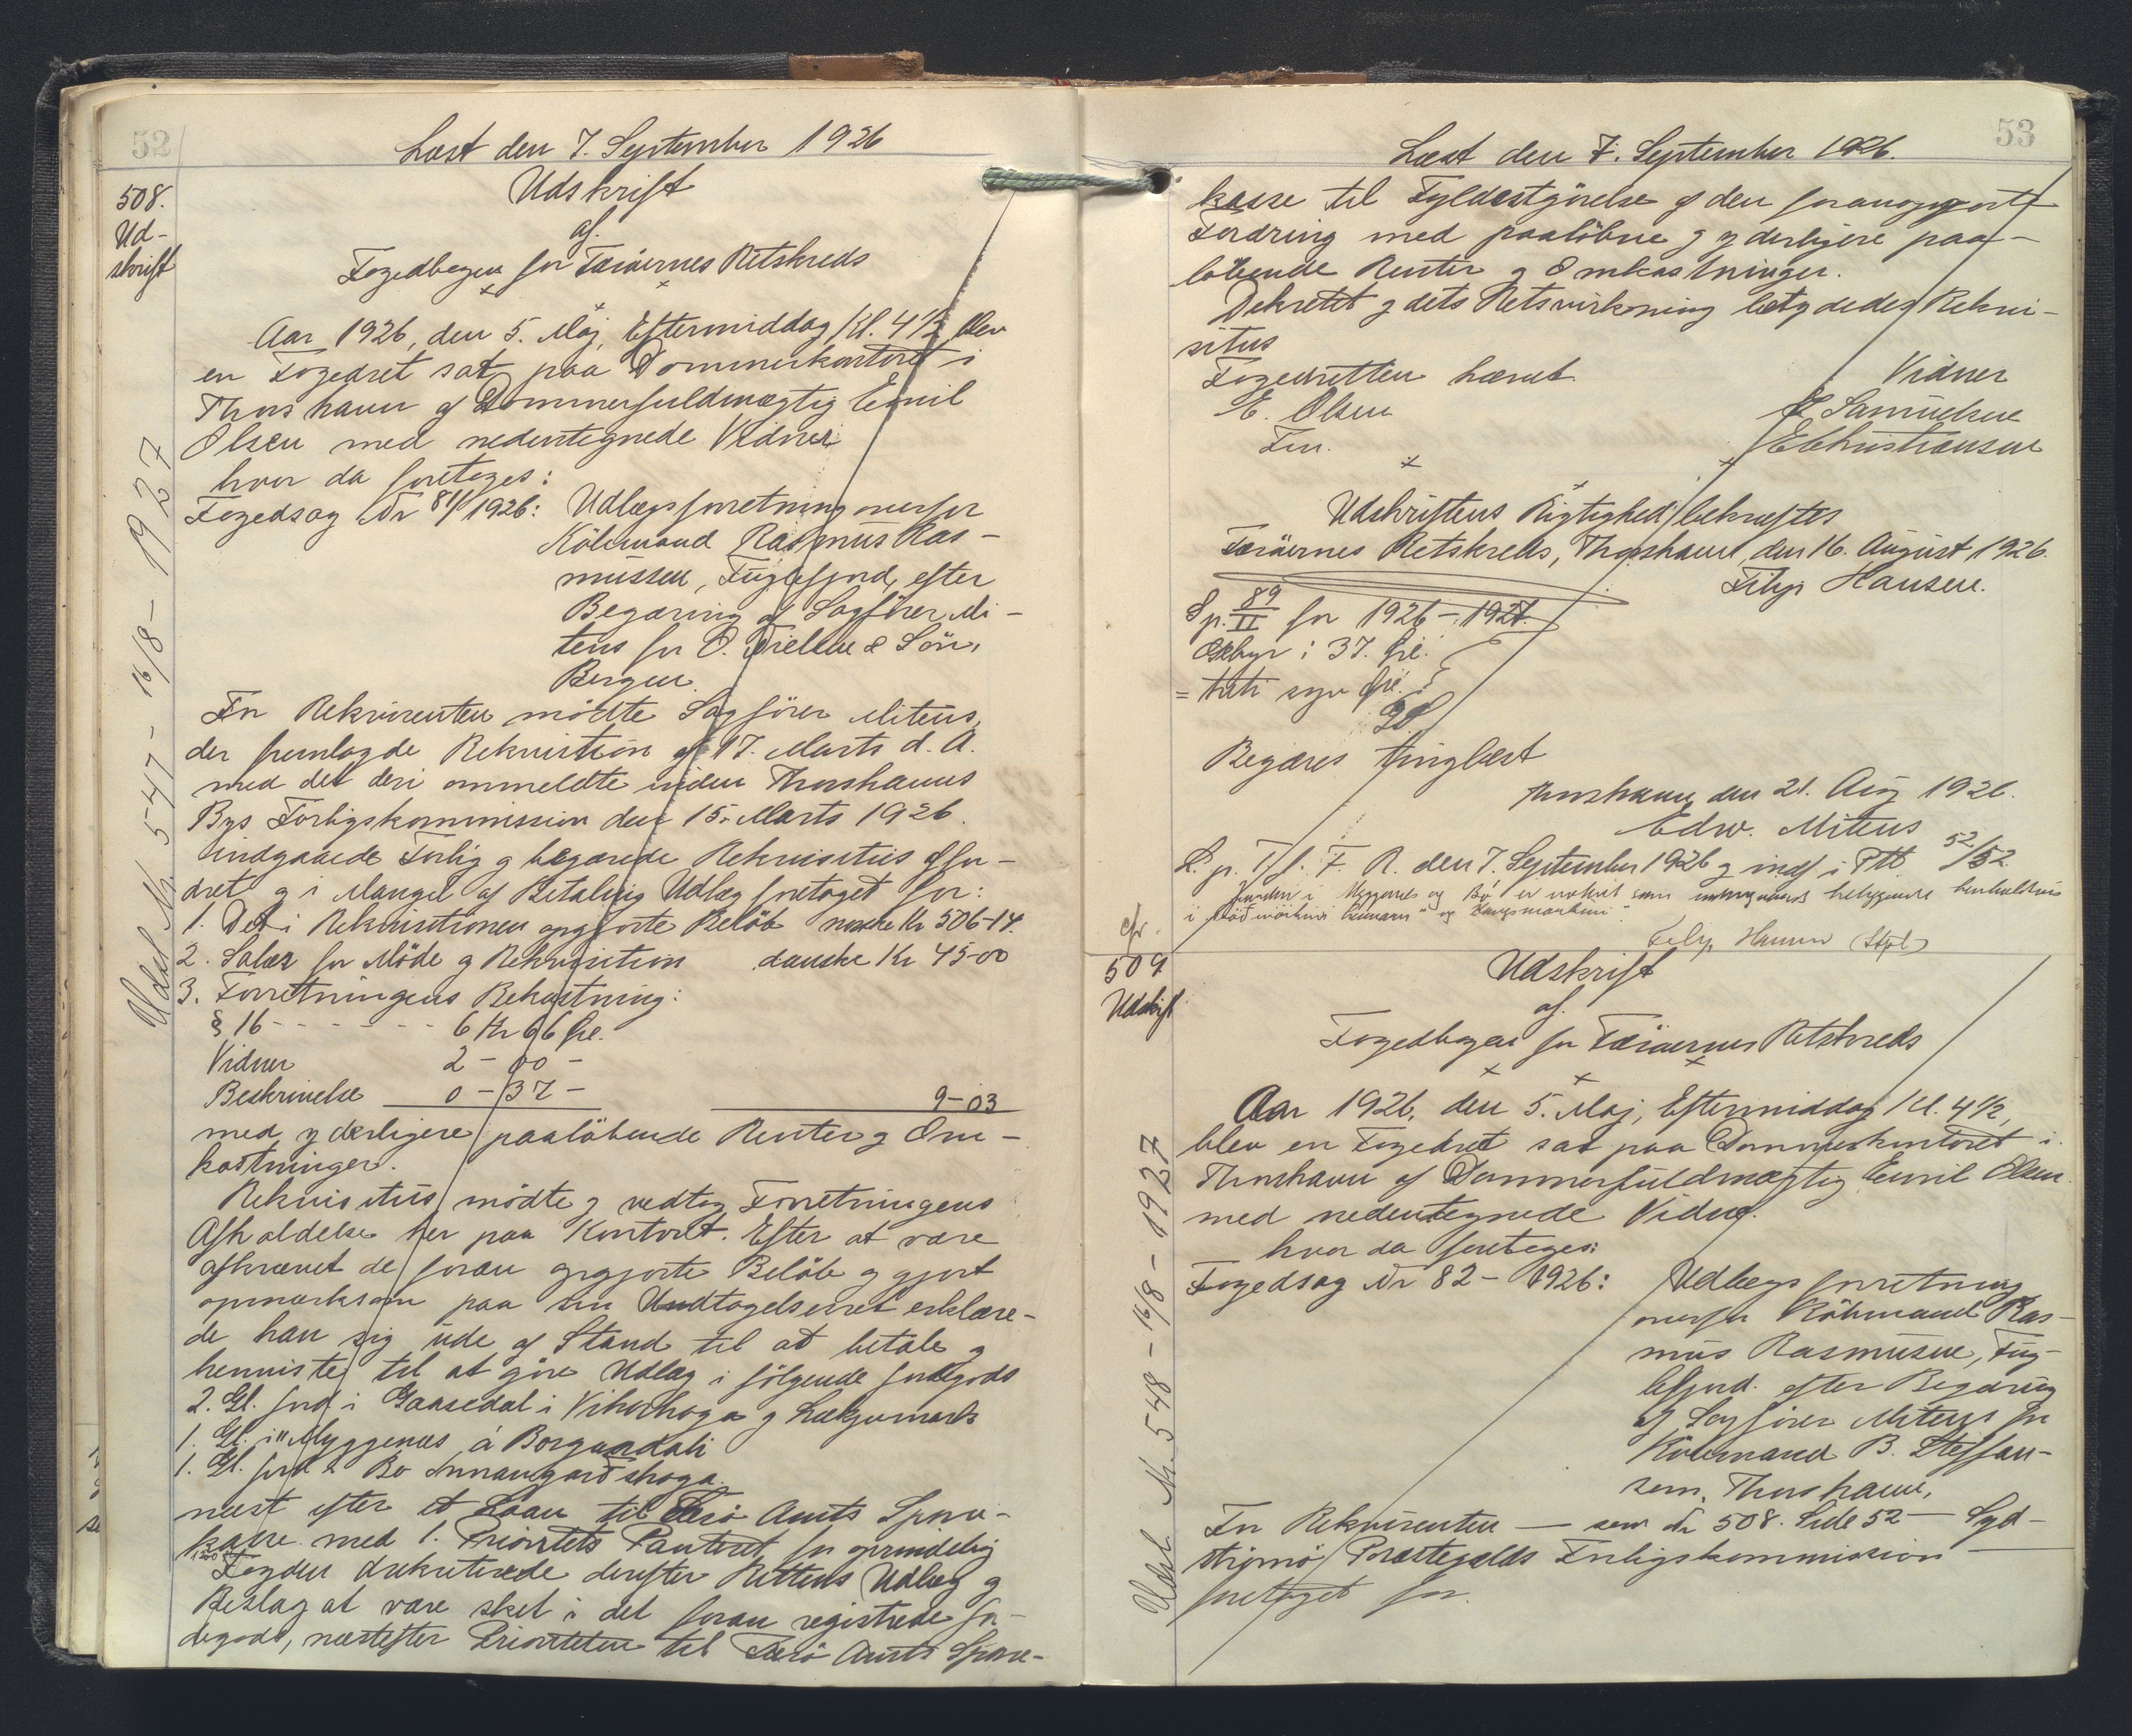 52
Læst den 7. September 1926
508.
Ud-
skrift
Udskrift
af
Fogedbogen for Færöernes Retskreds
Aar 1926, den 5. Maj, Eftermiddag Kl. 4½ blev
en Fogedret sat paa Dommerkontoret i
Thorshavn af Dommerfuldmægtig Emil
Olsen med nedentegnede Vidner
hvor da foretoges:
Fogedsag Nr 81/1926: Udlægsforretning overfor
Köbmand Rasmus Ras-
mussen, Fuglefjord, efter
Begæring af Sagförer Mi-
tens for O. & Sön,
Bergen.
For Rekvirenten mödte Sagförer Mitens,
der fremlagde Rekvisition af 17. Marts d. A.
med det deri ommeldte inden Thorshavns
Bys Forligskommission den 15. Marts 1926
indgaaede Forlig og begærede Rekvisitus
og i Mangel af Betaling Udlæg foretaget for:
1. Det i Rekvisitionen opgjorte Belöb norske Kr 506-14.
2. Salær for Möde og Rekvisition danske Kr 45-00
3. Forretningens Bekostning:
§ 16 - - - - - - - 6 Kr 66 Öre.
Vidner 2 - 00 -
Beskrivelse 0 - 37 - 9-03
med yderligere paalöbende Renter og Om-
kostninger.
Rekvisitus mödte og vedtog Forretningens
Afholdelse her paa Kontoret. Efter at være
afkrævet de foran opgjorte Belöb og gjort
opmærksom paa sin Undtagelsesret erklære-
de han sig ude af Stand til at betale og
henviste til at göre Udlæg i fölgende Jordegods
2. Gl. Jord i Gaasedal i Vikarhaga og
1. Gl. i " Myggenæs á Borgardali
1. Gl. Jord i Bö Innangarðshaga
næst efter et Laan til Færö Amts Spare-
kasse med 1. Prioritets Panteret for oprindelig
Fogden dekreterede derefter Rettens Udlæg og
Beslag at være sket i det foran registrerede Jor-
degods, næstefter Prioriteten til Færö Amts Spare-
Udsl. Nr. 547 - 16/8 - 1927
53
Læst den 7. September 1926.
kasse til Fyldestgörelse af den foranopgjorte
Fordring med paalöbne og yderligere paa-
löbende Renter og Omkostninger.
Dekretet og dets Retsvirkning betydedes Rekvi-
situs
Fogedretten hævet
E. Olsen
Fm.
Vidner
J. Samuelsen
E Christiansen
Udskriftens Rigtighed bekræftes
Færöernes Retskreds, Thorshavn, den 16. August 1926.
Filip Hansen.
Sp. 89/II for 1926-1927.
Gebyr: 37. Öre.
= syv Öre.
Begæres tinglæst
Thorshavn den 21. Aug 1926.
Edw. Mitens
L. p. T. f. F. R. den 7. September 1926 og indf i Ptt 52/52
i Myggenæs og Bö er noteret som
i
Filip Hansen (Stpl)
cfr.
509
Udskrift
Udskrift
af
Fogedbogen for Færöernes Retskreds
Aar 1926, den 5. Maj, Eftermiddag Kl. 4½,
blev en Fogedret sat paa Dommerkontoret i
Thorshavn af Dommerfuldmægtig Emil Olsen
med nedentegnede Vidner.
hvor da foretoges:
Fogedsag Nr 82 - 1926: Udlægsforretning
overfor Köbmand Ras-
mus Rasmussen, Fug-
lefjord. efter Begæring
af Sagförer Mitens for
Köbmand B. Steffan-
sen, Thorshavn,
For Rekvirenten — som Nr 508. Side 52 — Syd-
strömö Præstegælds Forligskommission
foretaget for.
Udsl. Nr. 548 - 16/8 - 1927